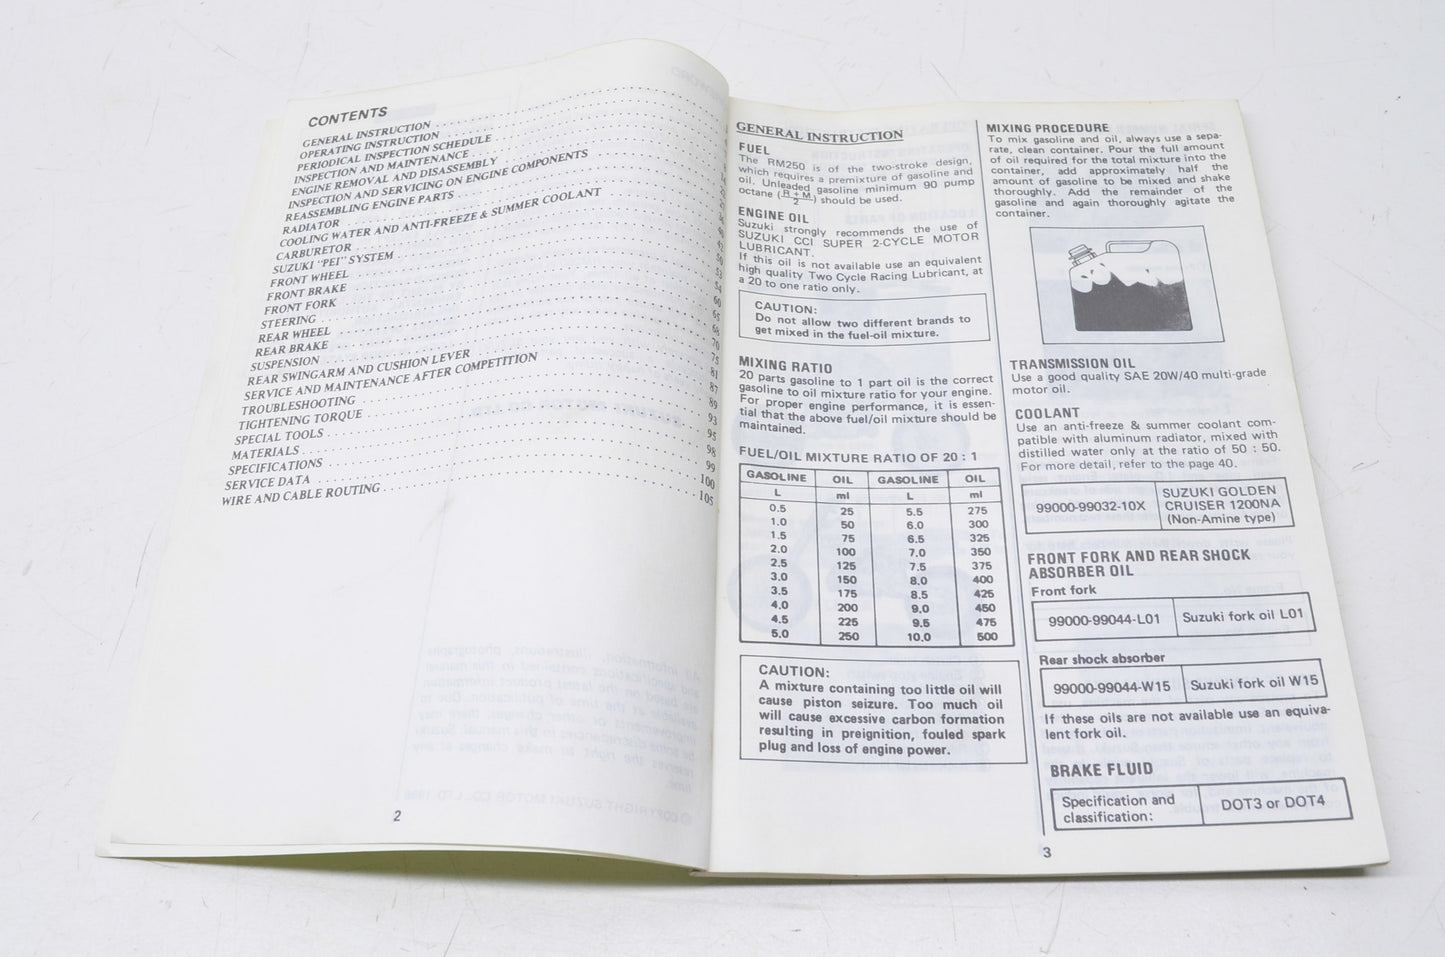 CONTENTS
GENERAL INSTRUCTION
OPERATING INSTRUCTION
PERIODICAL INSPECTION SCHEDULE
INSPECTION AND MAINTENANCE
ENGINE REMOVAL AND DISASSEMBLY
INSPECTION AND SERVICING ON ENGINE COMPONENTS
REASSEMBLING ENGINE PARTS
RADIATOR
COOLING WATER AND ANTI-FREEZE & SUMMER COOLANT
CARBURETOR
SUZUKI "PEI" SYSTEM
FRONT WHEEL
FRONT BRAKE
FRONT FORK
STEERING
REAR WHEEL
REAR BRAKE
SUSPENSION
REAR SWINGARM AND CUSHION LEVER
SERVICE AND MAINTENANCE AFTER COMPETITION
TROUBLESHOOTING
TIGHTENING TORQUE
SPECIAL TOOLS
MATERIALS
SPECIFICATIONS
SERVICE DATA
WIRE AND CABLE ROUTING
40
42
50
53
54
60
65
68
70
75
81
87
89
93
95
98
99
100
105
2
GENERAL INSTRUCTION
FUEL
The RM250 is of the two-stroke design,
which requires a premixture of gasoline and
oil. Unleaded gasoline minimum 90 pump
octane (R + M / 2) should be used.
ENGINE OIL
Suzuki strongly recommends the use of
SUZUKI CCI SUPER 2-CYCLE MOTOR
LUBRICANT.
If this oil is not available use an equivalent
high quality Two Cycle Racing Lubricant, at
a 20 to one ratio only.
CAUTION:
Do not allow two different brands to
get mixed in the fuel-oil mixture.
MIXING RATIO
20 parts gasoline to 1 part oil is the correct
gasoline to oil mixture ratio for your engine.
For proper engine performance, it is essen-
tial that the above fuel/oil mixture should be
maintained.
FUEL/OIL MIXTURE RATIO OF 20 : 1
GASOLINE OIL GASOLINE OIL
L ml L ml
0.5 25 5.5 275
1.0 50 6.0 300
1.5 75 6.5 325
2.0 100 7.0 350
2.5 125 7.5 375
3.0 150 8.0 400
3.5 175 8.5 425
4.0 200 9.0 450
4.5 225 9.5 475
5.0 250 10.0 500
CAUTION:
A mixture containing too little oil will
cause piston seizure. Too much oil
will cause excessive carbon formation
resulting in preignition, fouled spark
plug and loss of engine power.
MIXING PROCEDURE
To mix gasoline and oil, always use a sepa-
rate, clean container. Pour the full amount
of oil required for the total mixture into the
container, add approximately half the
amount of gasoline to be mixed and shake
thoroughly. Add the remainder of the
gasoline and again thoroughly agitate the
container.
TRANSMISSION OIL
Use a good quality SAE 20W/40 multi-grade
motor oil.
COOLANT
Use an anti-freeze & summer coolant com-
patible with aluminum radiator, mixed with
distilled water only at the ratio of 50 : 50.
For more detail, refer to the page 40.
99000-99032-10X SUZUKI GOLDEN
CRUISER 1200NA
(Non-Amine type)
FRONT FORK AND REAR SHOCK
ABSORBER OIL
Front fork
99000-99044-L01 Suzuki fork oil L01
Rear shock absorber
99000-99044-W15 Suzuki fork oil W15
If these oils are not available use an equiva-
lent fork oil.
BRAKE FLUID
Specification and
classification: DOT3 or DOT4
3